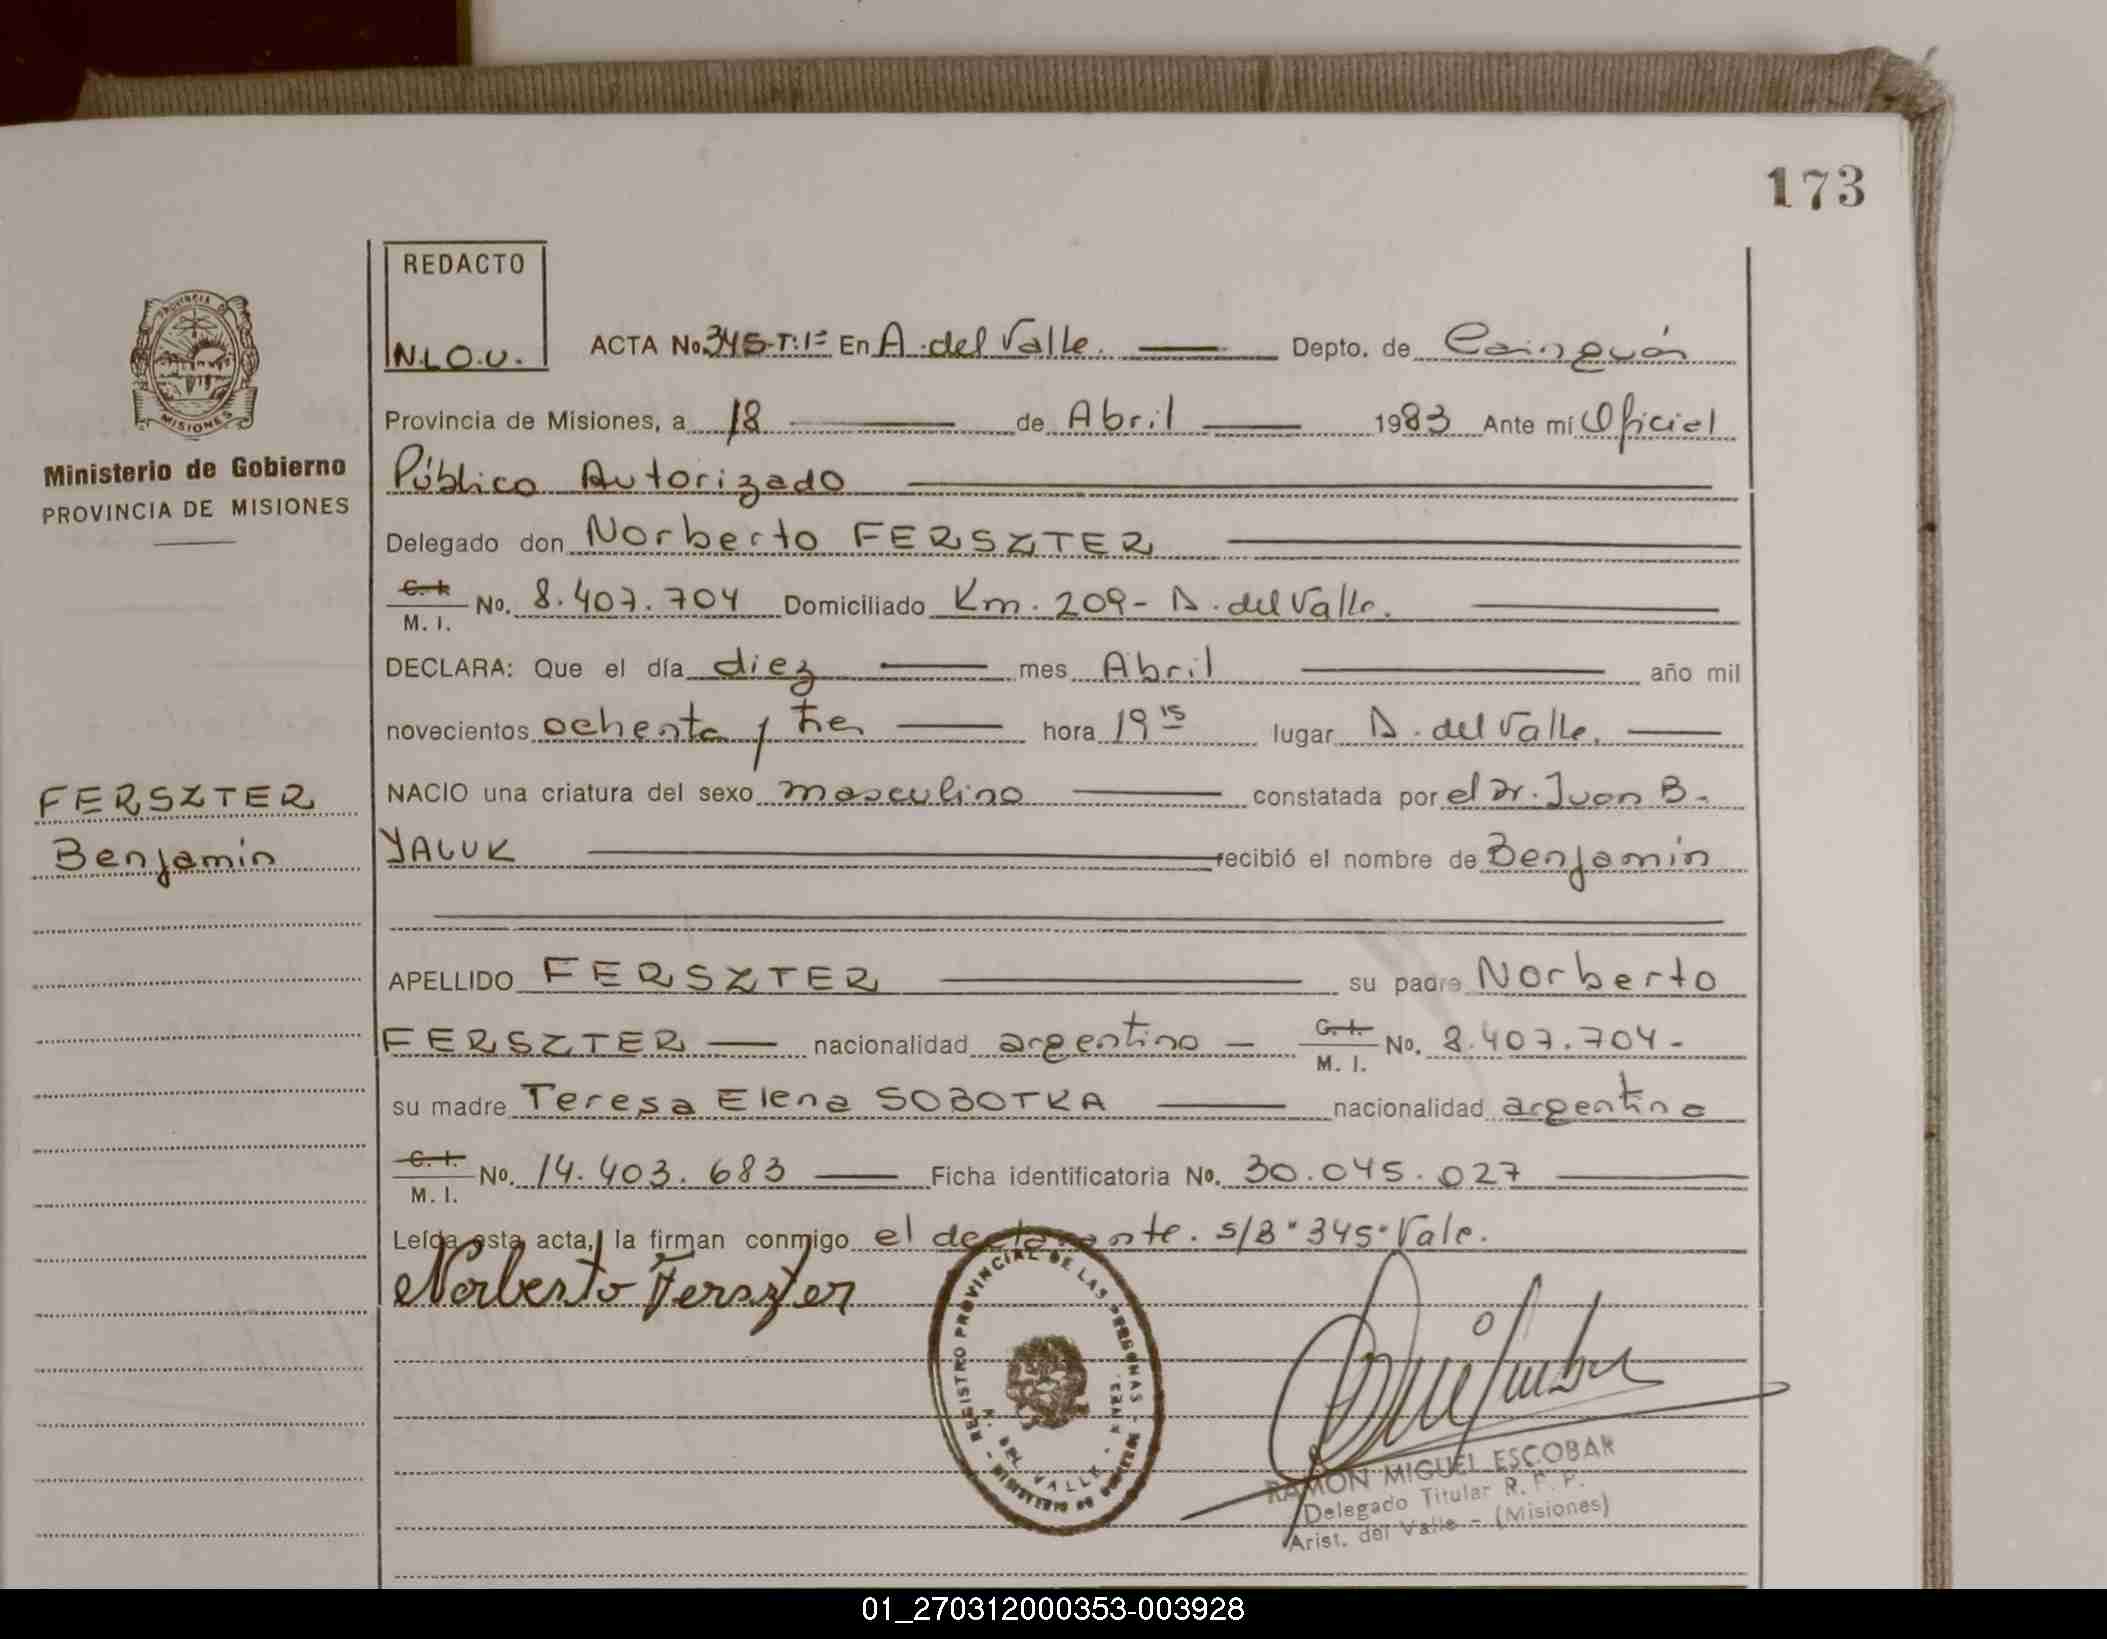 173
REDACTO
N.L.O.U.
ACTA No. 345-T:1º En A. del Valle. Depto. de Cainguás
Provincia de Misiones, a 18 de Abril 1983 Ante mí Oficial
Ministerio de Gobierno
PROVINCIA DE MISIONES
Público Autorizado
Delegado don Norberto FERSZTER
C. I. M. I. No. 8.407.704 Domiciliado Km. 209- A. del Valle.
DECLARA: Que el día diez mes Abril año mil
novecientos ochenta y tres hora 19 15 lugar A. del Valle.
FERSZTER
Benjamín
NACIO una criatura del sexo masculino constatada por el Dr. Juan B.
YALUK recibió el nombre de Benjamín
APELLIDO FERSZTER su padre Norberto
FERSZTER nacionalidad argentino - C. I. M. I. No. 8.407.704-
su madre Teresa Elena SOBOTKA nacionalidad argentina
C. I. M. I. No. 14.403.683 Ficha identificatoria No. 30.045.027
Leída esta acta, la firman conmigo el declarante. s/B "345" Vale.
Norberto Ferszter
REGISTRO PROVINCIAL DE LAS PERSONAS
A. DEL VALLE
RAMON MIGUEL ESCOBAR
Delegado Titular R. P. P.
Arist. del Valle - (Misiones)
PROVINCIA DE
MISIONES
01_270312000353-003928